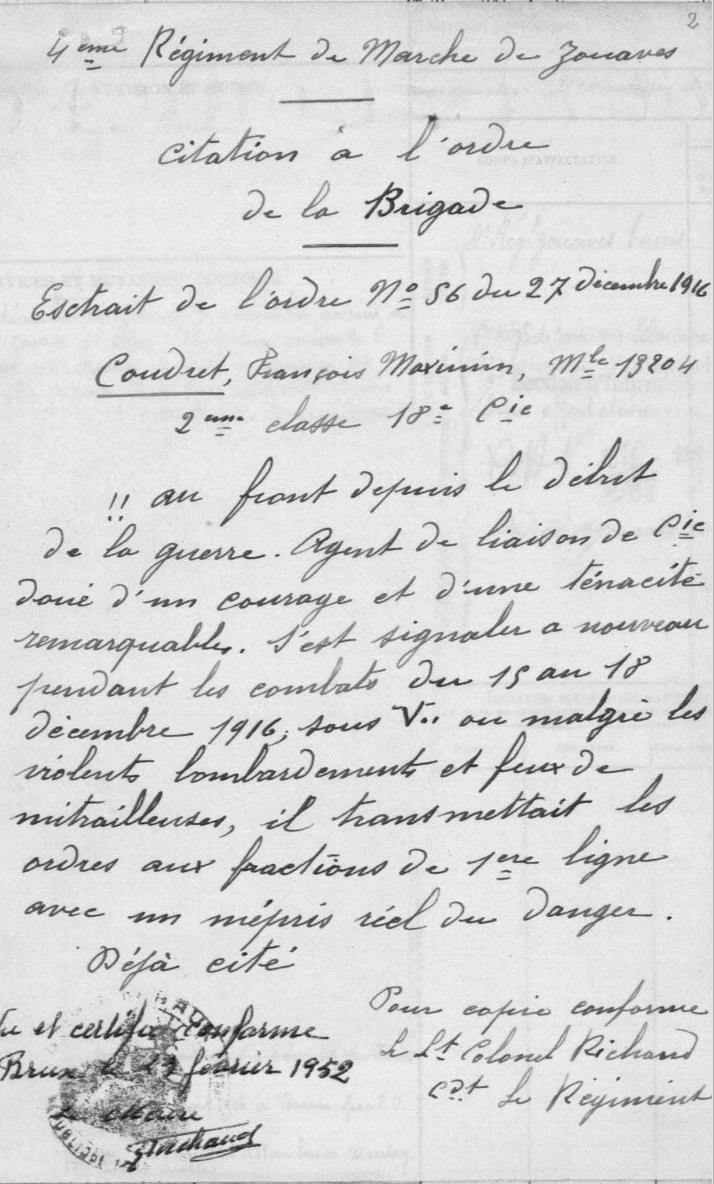 2
4ème Régiment de Marche de Zouaves
citation à l'ordre
de la Brigade
Esctrait de l'ordre No 56 du 27 décembre 1916
Coudret, François Maximin, Mle 13204
2eme classe 18e Cie
!! au front depuis le début
de la guerre. Agent de liaison de Cie
doué d'un courage et d'une ténacité
remarquables. S'est signaler a nouveau
pendant les combats du 15 au 18
décembre 1916, sous V.. ou malgré les
violents bombardements et feux de
mitrailleuses, il transmettait les
ordres aux fractions de 1ere ligne
avec un mépris réel du danger.
Déjà cité
Pour copie conforme
le Lt Colonel Richaud
Cdt le Régiment
et certifié conforme
Brux le 23 février 1952
Le Maire